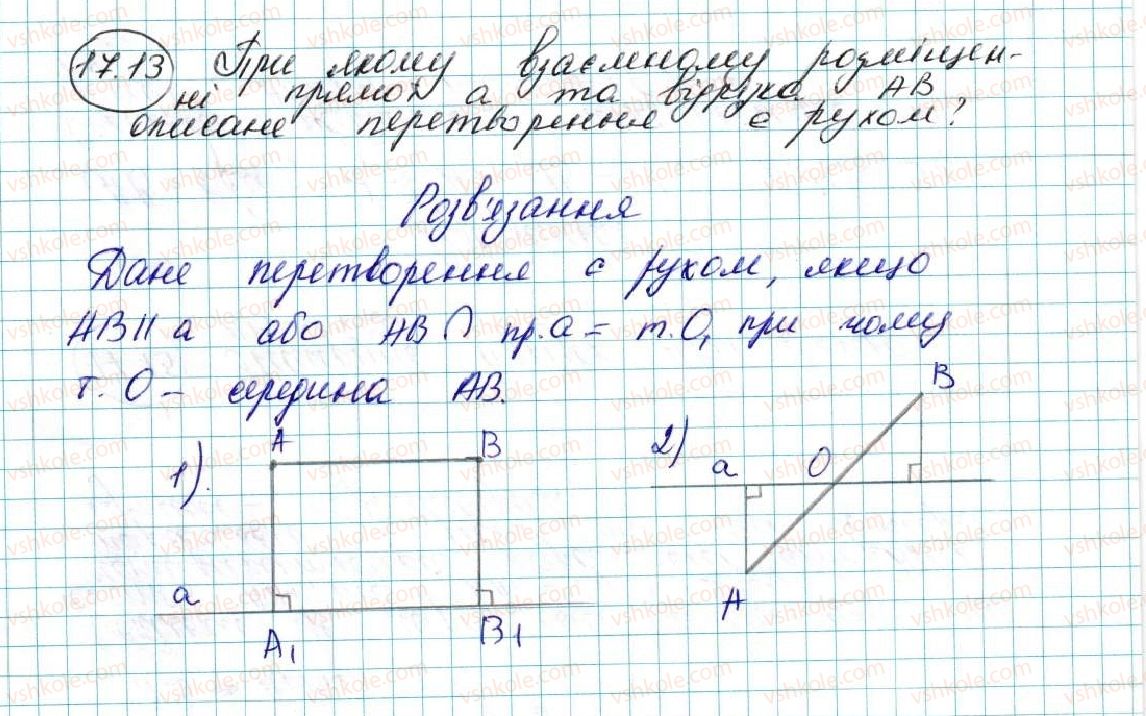 17.13 При якому взаємному розміщен-
ні прямої а та відрізка АВ
описане перетворення є рухом?
Розв'язання
Дане перетворення є рухом, якщо
АВ || а або АВ ∩ пр.а = т.О, при чому
т. О - середина АВ.
1). А В
а
А₁ В₁
2) а О В
А
vshkole.com